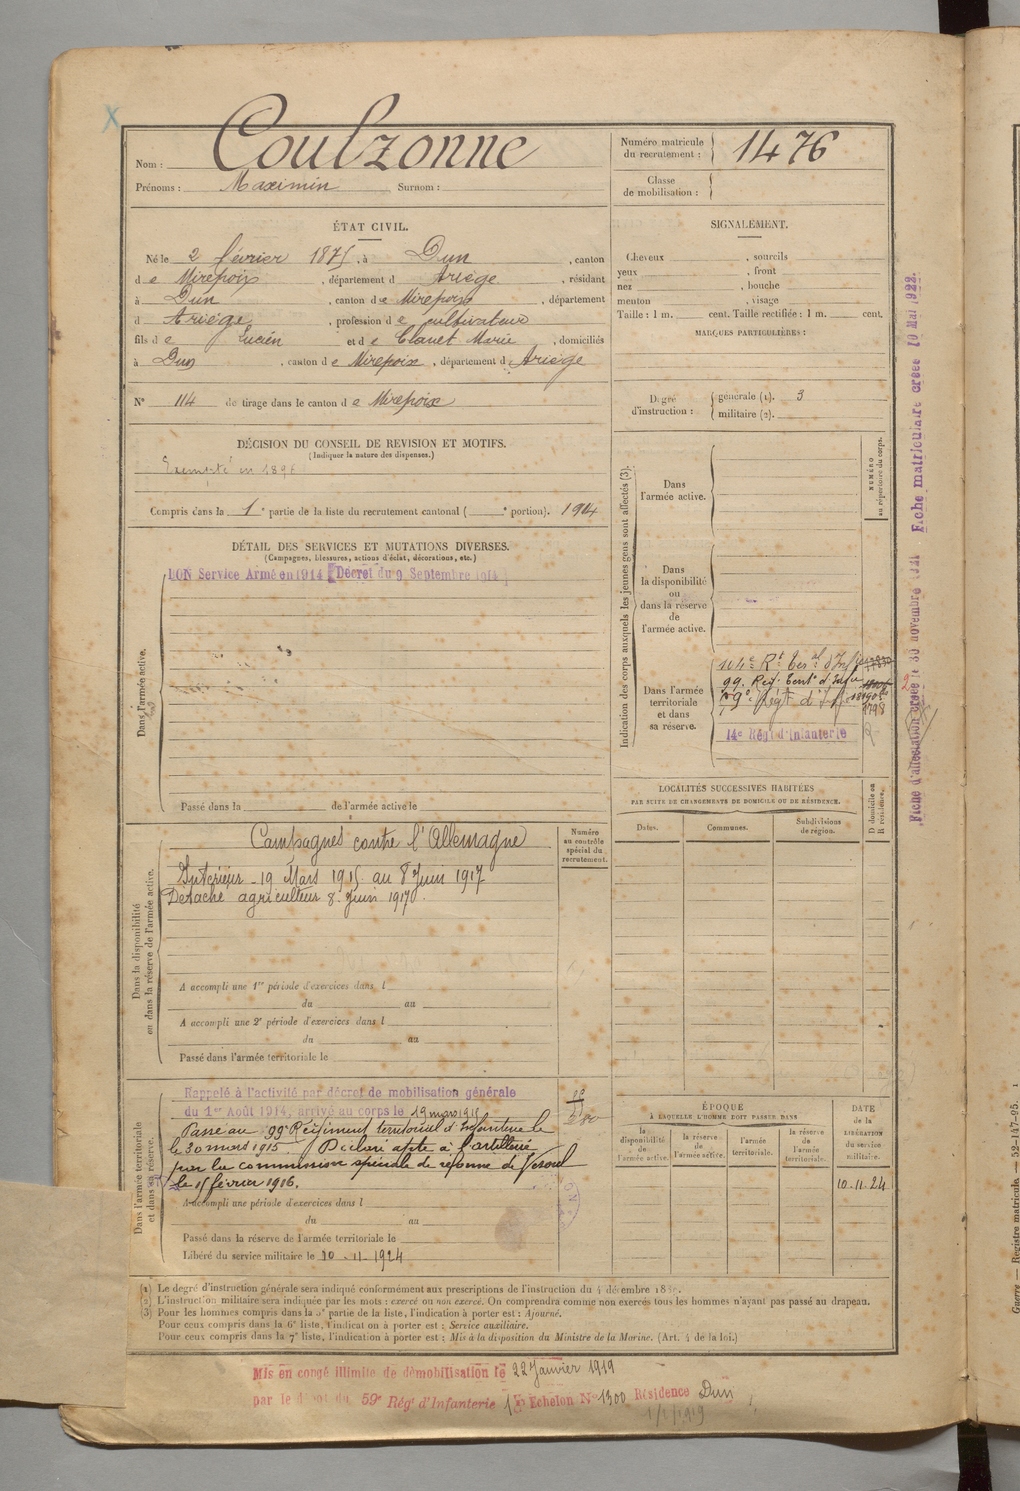 Nom : Coulzonne
Prénoms : Maximin Surnom :
Numéro matricule
du recrutement : 1476
Classe
de mobilisation :
ÉTAT CIVIL.
Né le 2 février 1875, à Dun, canton
de Mirepoix, département d Ariège, résidant
à Dun, canton de Mirepoix, département
d Ariège, profession de cultivateur
fils de Lucien et de Clanet Marie, domiciliés
à Dun, canton de Mirepoix, département d Ariège
N° 114 de tirage dans le canton de Mirepoix
DÉCISION DU CONSEIL DE REVISION ET MOTIFS.
(Indiquer la nature des dispenses.)
Exempté en 1896
Compris dans la 1e partie de la liste du recrutement cantonal ( e portion). 1914
SIGNALEMENT.
Cheveux , sourcils
yeux , front
nez , bouche
menton , visage
Taille : 1 m. cent. Taille rectifiée : 1 m. cent.
MARQUES PARTICULIÈRES :
Degré
d'instruction :
générale (1). 3
militaire (2).
DÉTAIL DES SERVICES ET MUTATIONS DIVERSES.
(Campagnes, blessures, actions d'éclat, décorations, etc.)
BON Service Armé en 1914 [Décret du 9 Septembre 1914]
Dans l'armée active.
Passé dans la de l'armée active le
Indication des corps auxquels les jeunes gens sont affectés (3).
NUMÉRO
au répertoire du corps.
Dans
l'armée active.
Dans
la disponibilité
ou
dans la réserve
de
l'armée active.
Dans l'armée
territoriale
et dans
sa réserve.
104e Rt Terral d'Inf
99e Reg. territ d'Infie
59e Régt d'Inf.
14e Régt d'Infanterie
1798
LOCALITÉS SUCCESSIVES HABITÉES
PAR SUITE DE CHANGEMENTS DE DOMICILE OU DE RÉSIDENCE.
Dates. Communes. Subdivisions
de région.
D domicile ou
R résidence.
Dans la disponibilité
ou dans la réserve de l'armée active.
Numéro
au contrôle
spécial du
recrutement.
Campagnes contre l'Allemagne
Intérieur - 19 Mars 1915 au 8 Juin 1917
Détaché agriculteur 8 Juin 1917
A accompli une 1re période d'exercices dans l
du au
A accompli une 2e période d'exercices dans l
du au
Passé dans l'armée territoriale le
Dans l'armée territoriale
et dans sa réserve.
Rappelé à l'activité par décret de mobilisation générale
du 1er Août 1914, arrivé au corps le 19 mars 1915
Passé au 99e Régiment territorial d'Infanterie le
le 30 mars 1915. Déclaré apte à l'artillerie
par la commission spéciale de réforme de Vesoul
le 15 février 1916.
A accompli une période d'exercices dans l
du au
Passé dans la réserve de l'armée territoriale le
Libéré du service militaire le 10 - 11 - 1924
ÉPOQUE
À LAQUELLE L'HOMME DOIT PASSER DANS
la
disponibilité
de
l'armée active.
la réserve
de
l'armée active.
l'armée
territoriale.
la réserve
de
l'armée
territoriale.
DATE
de la
LIBÉRATION
du service
militaire.
10-11-24
(1) Le degré d'instruction générale sera indiqué conformément aux prescriptions de l'instruction du 4 décembre
(2) L'instruction militaire sera indiquée par les mots : exercé ou non exercé. On comprendra comme non exercés tous les hommes n'ayant pas passé au drapeau.
(3) Pour les hommes compris dans la 5e partie de la liste, l'indication à porter est : Ajourné.
Pour ceux compris dans la 6e liste, l'indication à porter est : Service auxiliaire.
Pour ceux compris dans la 7e liste, l'indication à porter est : Mis à la disposition du Ministre de la Marine. (Art. 4 de la loi.)
Mis en congé illimité de démobilisation le 22 Janvier 1919
par le dépôt du 59e Régt d'Infanterie Echelon N° 1300 Résidence Dun
Fiche d'affectation créée le 30 novembre Fiche matriculaire créée 10 Mai 1922.
Guerre — Registre matricule. — 52-147-95.